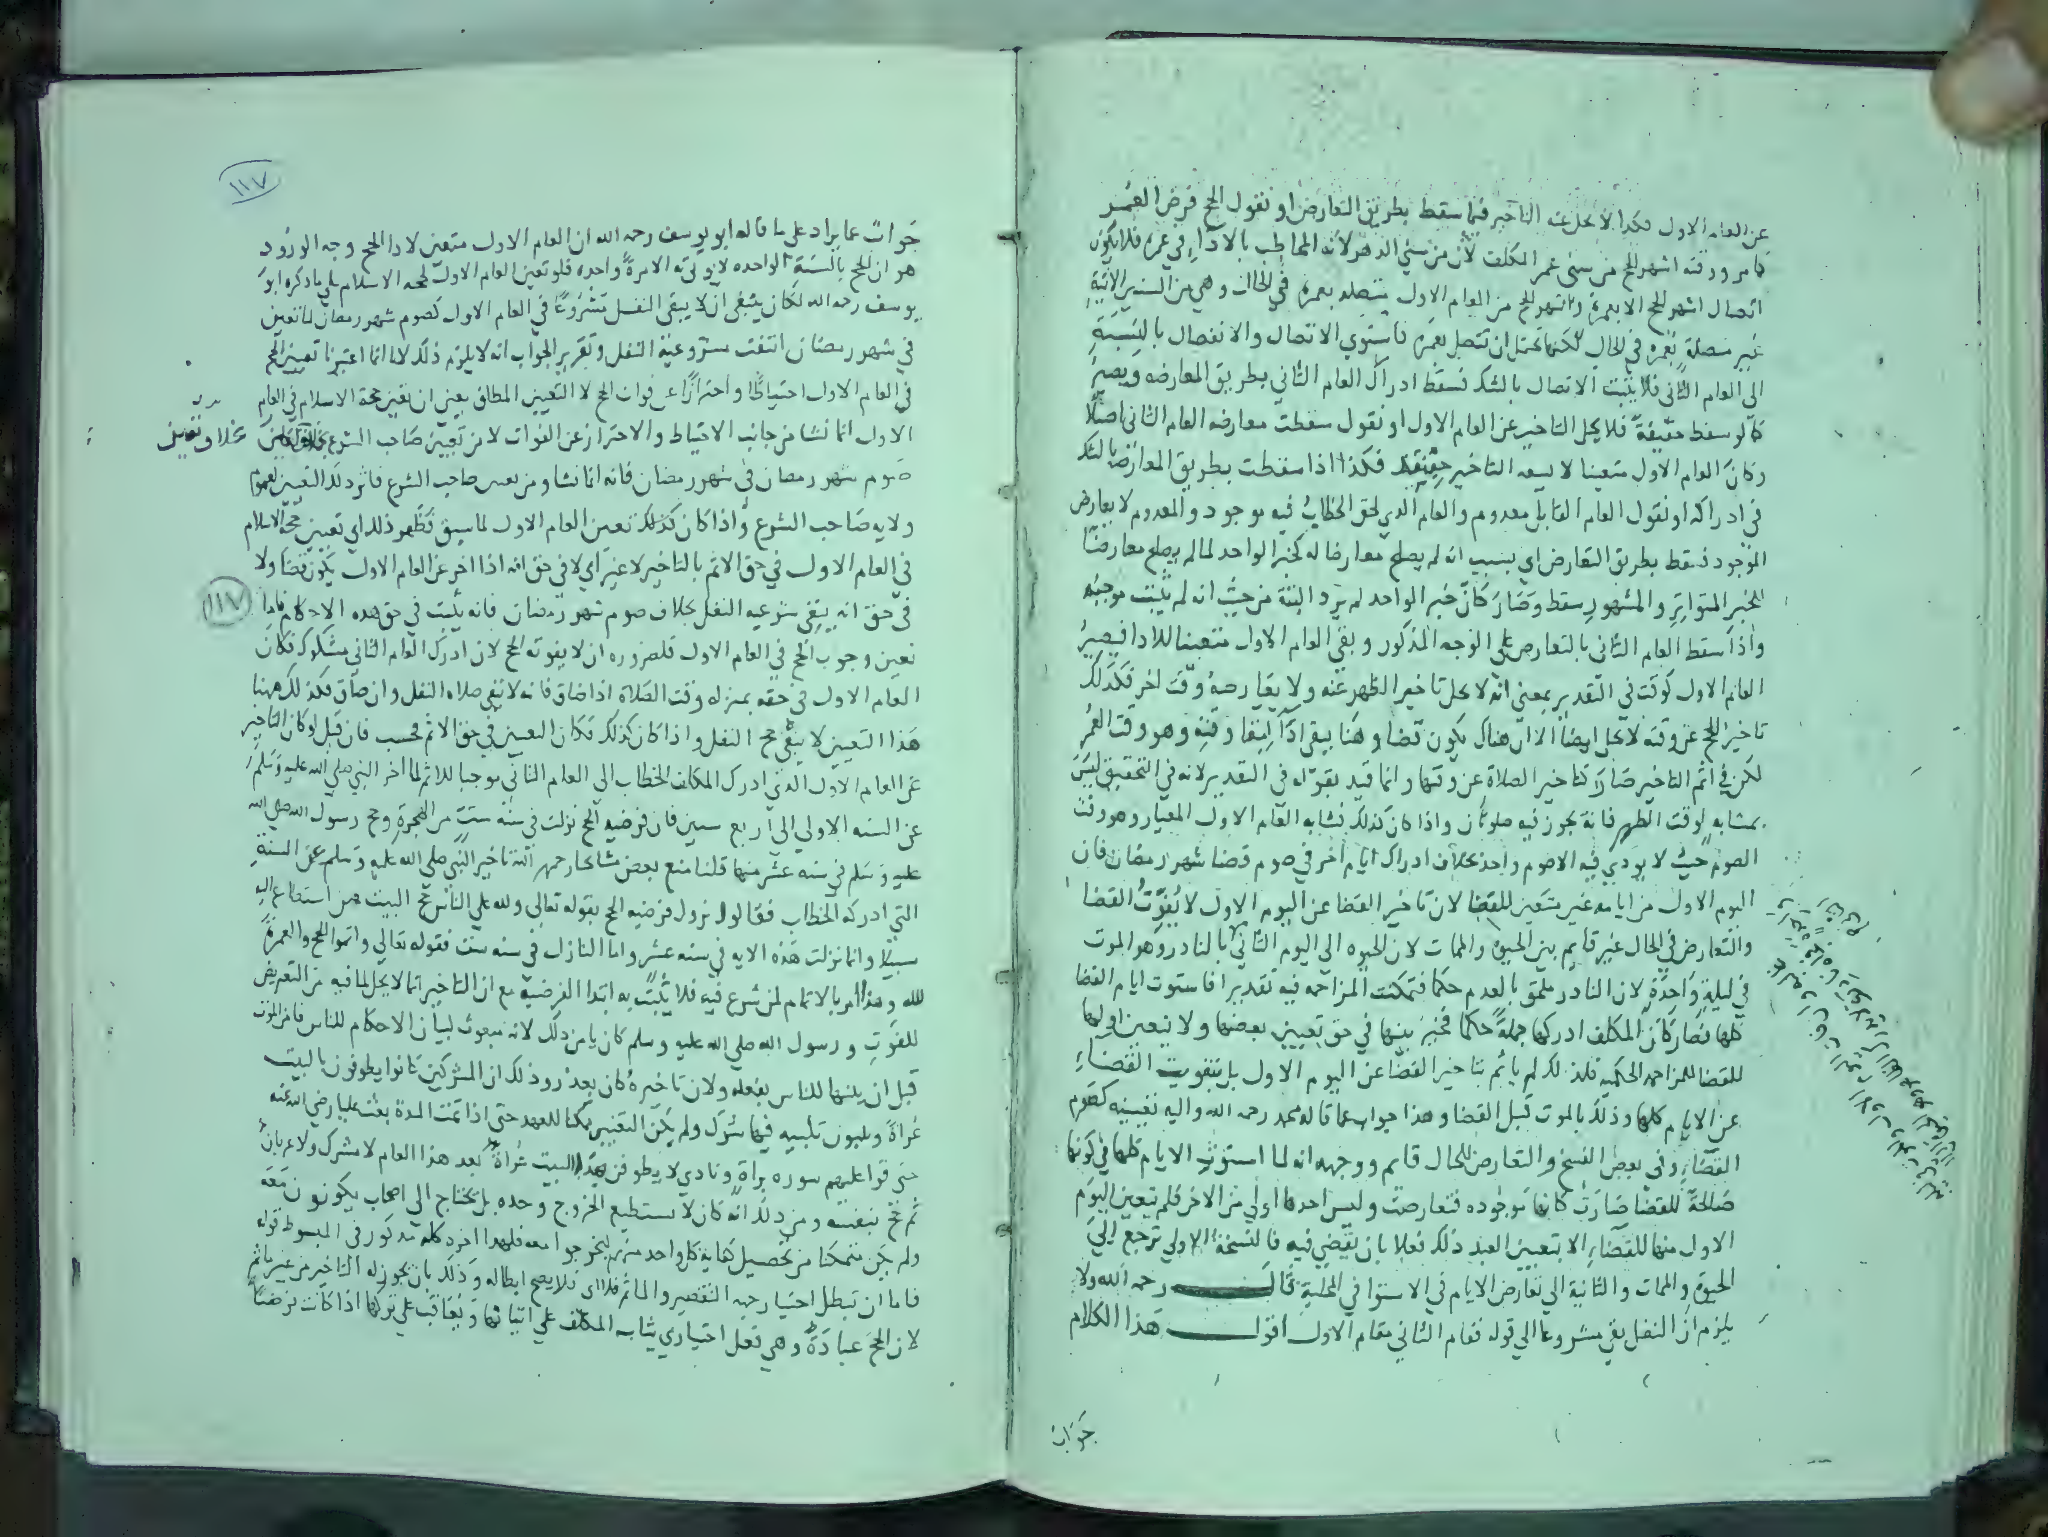 عن العام الاول فكذا لا يحل عنه التاخير فيما سقط بطريق التعارض او نقول الحج فرض العمر
كما مر ووقته اشهر الحج من سنى عمر المكلف لا من سنى الدهر لانه المخاطب بالاداء في عمره فلا يكون
اتصال اشهر الحج الا بعمره واشهر الحج من العام الاول متصله بعمره في الحال وهي من السنين الاتية
غير متصلة بعمره في الحال لكنها تحتمل ان تتصل بعمره فاستوي الاتصال والانفصال بالنسبة
الى العام الثاني فلا يثبت الاتصال بالشك فسقط ادراك العام الثاني بطريق المعارضه ويصير
كما لو سقط حقيقة فلا يحل التاخير عن العام الاول او نقول سقطت معارضه العام الثاني اصلا
وكان العام الاول متعينا لا يسعه التاخير حقيقة فكذا اذا سقطت بطريق المعارضة بالشك
في ادراكه او نقول العام القابل معدوم والعام الذي لحق الخطاب فيه موجود والمعدوم لا يعارض
الموجود فسقط بطريق التعارض اي بسبب انه لم يصلح معارضا له كخبر الواحد لما لم يصلح معارضا
للخبر المتواتر والمشهور سقط وصار كان خبر الواحد لم يرد البتة من حيث انه لم يثبت موجبه
واذا سقط العام الثاني بالتعارض على الوجه المذكور وبقي العام الاول متعينا للادا فيصير
العام الاول كوقت في التقدير بمعني انه لا يحل تاخير الظهر عنه ولا يعارضه وقت اخر فكذلك
تاخير الحج عن وقته لا يحل ايضا الا ان هناك يكون قضا وهنا يبقى اداء لبقا وقته وهو وقت العمر
لكن في اثم التاخير صار كتاخير الصلاة عن وقتها وانما قيد بقوله في التقدير لانه في التحقيق ليس
بمشابه لوقت الظهر فانه يجوز فيه صلوتان واذا كان كذلك فشابه العام الاول المعيار وهو وقت
الصوم حيث لا يودي فيه الا صوم واحد بخلاف ادراك ايام اخر في صوم قضا شهر رمضان فان
اليوم الاول من ايامه غير متعين للقضا لان تاخير القضا عن اليوم الاول لا يفوت القضا
والتعارض في الحال غير قايم بين الحيوة والممات لان الحيوه الي اليوم الثاني بالنادر وهو الموت
في ليلة واحدة لان النادر ملحق بالعدم حكما فتمكنت المزاحمه فيه تقديرا فاستوت ايام القضا
كلها فصار كان المكلف ادركها جملة حكما فخير بينها في حق تعيين بعضها ولا يتعين اولها
للقضا للمزاحمه الحكميه فلذلك لم ياثم بتاخير القضا عن اليوم الاول بل بتفويت القضاء
عن الايام كلها وذلك بالموت قبل القضا وهذا جواب عما قاله محمد رحمه الله واليه تعيينه كصوم
القضاء وفي بعض النسخ والتعارض للحال قايم ووجهه انه لما استوت الايام كلها في كونها
صالحة للقضا صارت كانها موجوده فتعارضت وليس احدها اولي من الاخر فلم يتعين اليوم
الاول منها للقضاء الا بتعيين العبد ذلك فعلا بان يقضي فيه فالنسخة الاولي ترجع الي
الحيوة والممات والثانية الي تعارض الايام في الاستوا في المحلية قال رحمه الله ولا
يلزم ان النفل بقي مشروعا الي قوله فقام الثاني مقام الاول اقول هذا الكلام
جواب
١١٧
جواب عما يراد على ما قاله ابو يوسف رحمه الله ان العام الاول متعين لادا الحج وجه الورود
هو ان الحج بالسنة الواحده لا يوتي به الا مرة واحده فلو تعين العام الاول لحجة الاسلام علي ما ذكره ابو
يوسف رحمه الله لكان ينبغي ان لا يبقى النفل مشروعا في العام الاول كصوم شهر رمضان لما تعين
في شهر رمضان انتفت مشروعية النفل وتقرير الجواب انه لا يلزم ذلك لانا انما اعتبرنا تعيين الحج
في العام الاول احتياطا واحترازا عن فوات الحج لا التعيين المطلق يعني ان تعين حجة الاسلام في العام
الاول انما نشا من جانب الاحتياط والاحتراز عن الفوات لا من تعيين صاحب الشرع
بخلاف تعيين
صوم شهر رمضان في شهر رمضان فانه انما نشا من تعيين صاحب الشرع فاثر ذلك التعيين لعموم
ولايه صاحب الشرع واذا كان كذلك تعين العام الاول لما سبق فظهر ذلك اي تعيين حجة الاسلام
في العام الاول في حق الاثم بالتاخير لا غير اي لا في حق انه اذا اخر عن العام الاول يكون قضا ولا
في حق انه ينتفي شرعيه النفل بخلاف صوم شهر رمضان فانه يثبت في حق هذه الاحكام فاما
١١٧
تعين وجوب الحج في العام الاول فلضروره ان لا يفوته الحج لان ادرك العام الثاني مشكوك فكان
العام الاول في حقه بمنزله وقت الصلاة اذا ضاق فانه لا تنفى صلاه النفل وان ضاق فكذلك ههنا
هذا التعيين لا ينفي حج النفل واذا كان كذلك فكان التعيين في حق الاثم فحسب فان قيل لو كان التاخير
عن العام الاول الذي ادرك المكلف الخطاب الي العام الثاني موجبا للاثم لما اخر النبي صلى الله عليه وسلم
عن السنه الاولي الي اربع سنين فان فرضيه الحج نزلت في سنة ست من الهجرة وحج رسول الله صلى الله
عليه وسلم في سنه عشر منها قلنا منع بعض مشايخنا رحمهم الله تاخير النبي صلى الله عليه وسلم عن السنة
التي ادركه الخطاب فقالوا نزول فرضيه الحج بقوله تعالى ولله علي الناس حج البيت من استطاع اليه
سبيلا وانما نزلت هذه الايه في سنه عشر واما النازل في سنه ست فقوله تعالي واتموا الحج والعمرة
لله وهذا امر بالاتمام لمن شرع فيه فلا يثبت به ابتدا الفرضية مع ان التاخير انما لا يحل لما فيه من التعريض
للفوت ورسول الله صلى الله عليه وسلم كان يامن ذلك لانه مبعوث لبيان الاحكام للناس فامن الموت
قبل ان يبينها للناس بفعله ولان تاخيره كان بعذر وذلك ان المشركين كانوا يطوفون بالبيت
عراة ويلبون تلبيه فيها شرك ولم يكن التغيير ممكنا للعهد حتى اذا تمت المدة بعث عليا رضي الله عنه
حتى قرا عليهم سوره براة ونادي لا يطوفن بهذا البيت عراة بعد هذا العام لا مشرك ولا عريان
ثم حج بنفسه ومن ذلك انه كان لا يستطيع الخروج وحده بل يحتاج الي اصحاب يكونون معه
ولم يكن متمكنا من تحصيل كفاية كل واحد منهم ليخرجوا معه فلهذا اخر كله مذكور في المبسوط قوله
فاما ان تبطل احتيارجهه التقصير والماثم فلا اي فلا يصح ابطاله وذلك بان يجوز له التاخير من غير ماثم
لان الحج عبادة وهي فعل اختياري يثاب المكلف علي اتيانها ويعاقب علي تركها اذا كانت فرضا